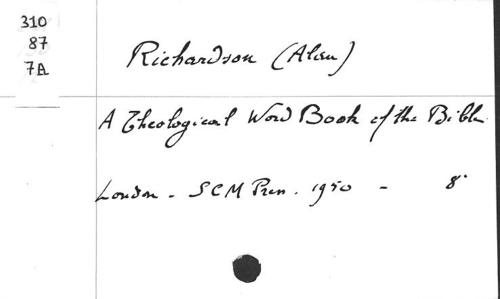 310
87
7A
Richardson (Alan)
A Theological Word Book of the Bible
London - SCM Press. 1950 - 8°